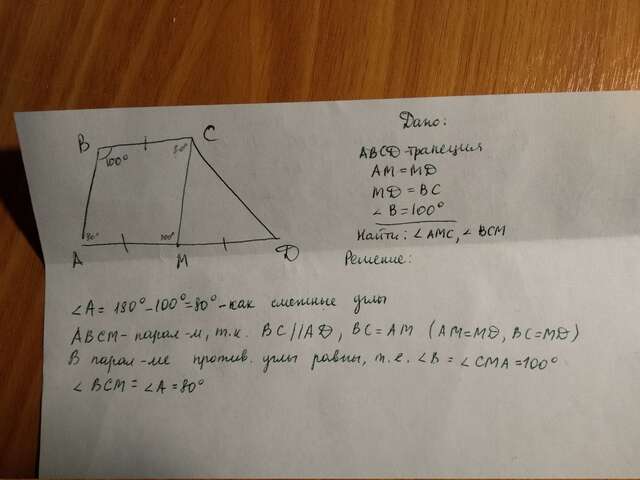 B
C
100°
80°
80°
100°
A
M
D
Дано:
ABCD-трапеция
AM = MD
MD = BC
∠B = 100°
Найти: ∠AMC, ∠BCM
Решение:
∠A = 180°-100°=80°-как смежные углы
ABCM- парал-м, т.к. BC//AD, BC=AM (AM=MD, BC=MD)
В парал-ме против. углы равны, т.е. ∠B = ∠CMA=100°
∠BCM = ∠A = 80°